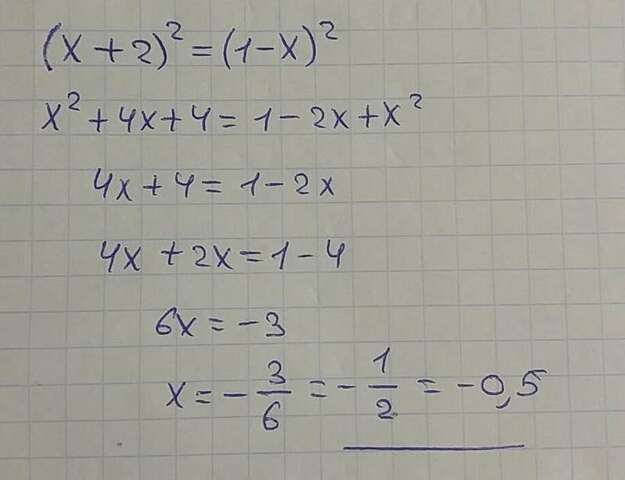 (x+2)² = (1-x)²
x² + 4x + 4 = 1 - 2x + x²
4x + 4 = 1 - 2x
4x + 2x = 1 - 4
6x = -3
x = - 3/6 = - 1/2 = -0,5